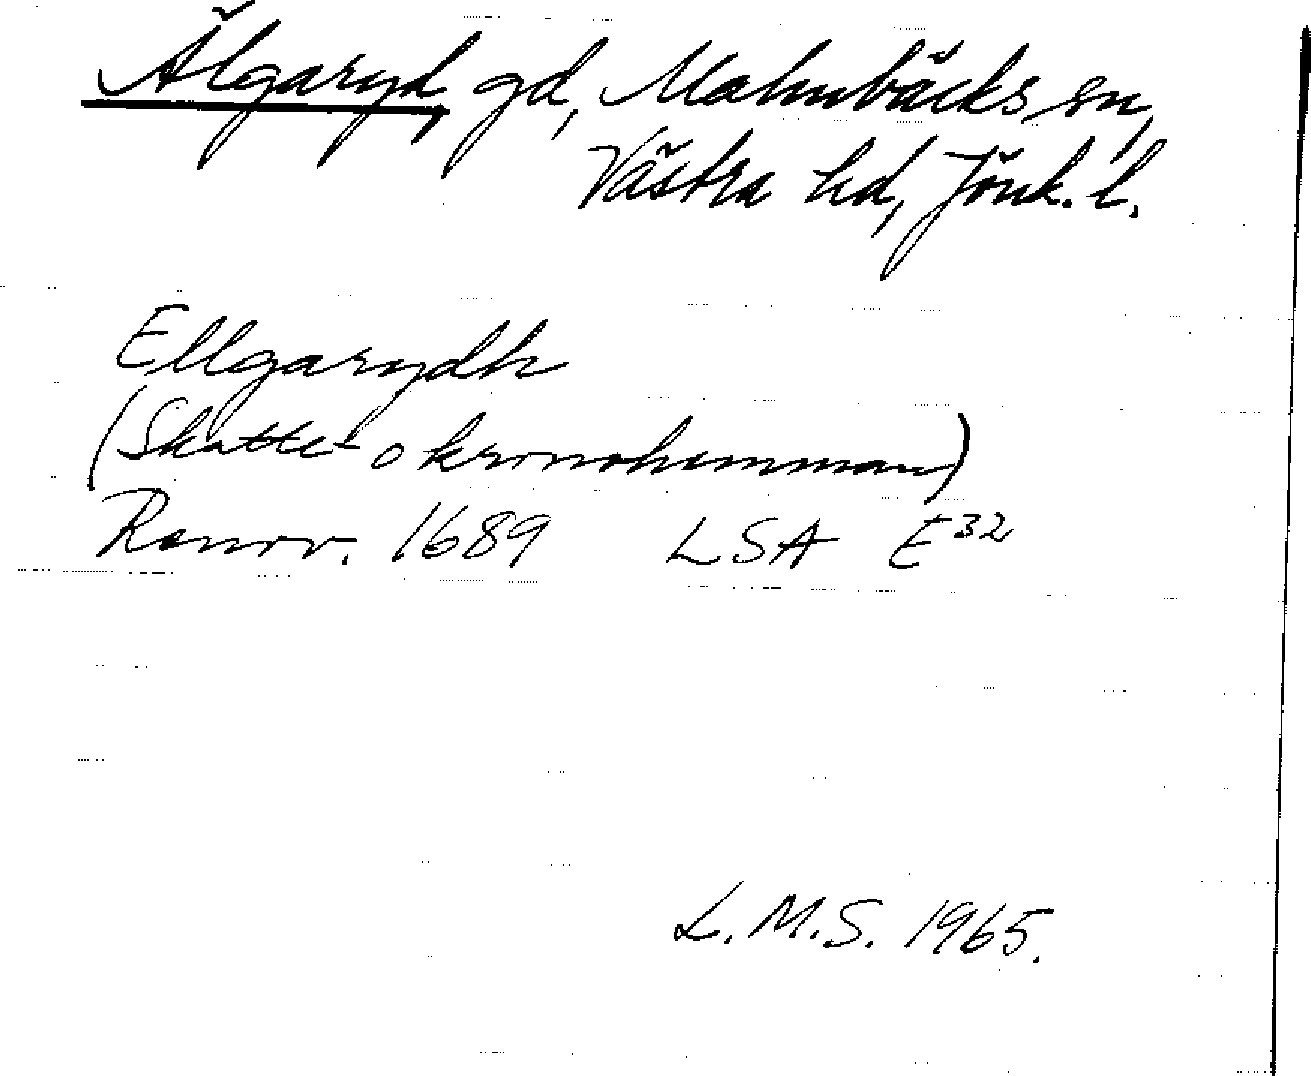 Älgaryd, gd, Malmbäcks sn,
Västra hd, Jönk. l.
Ellgarydh
(Skatte- o kronohemman)
Renov. 1689 LSA E32
L.M.S. 1965.